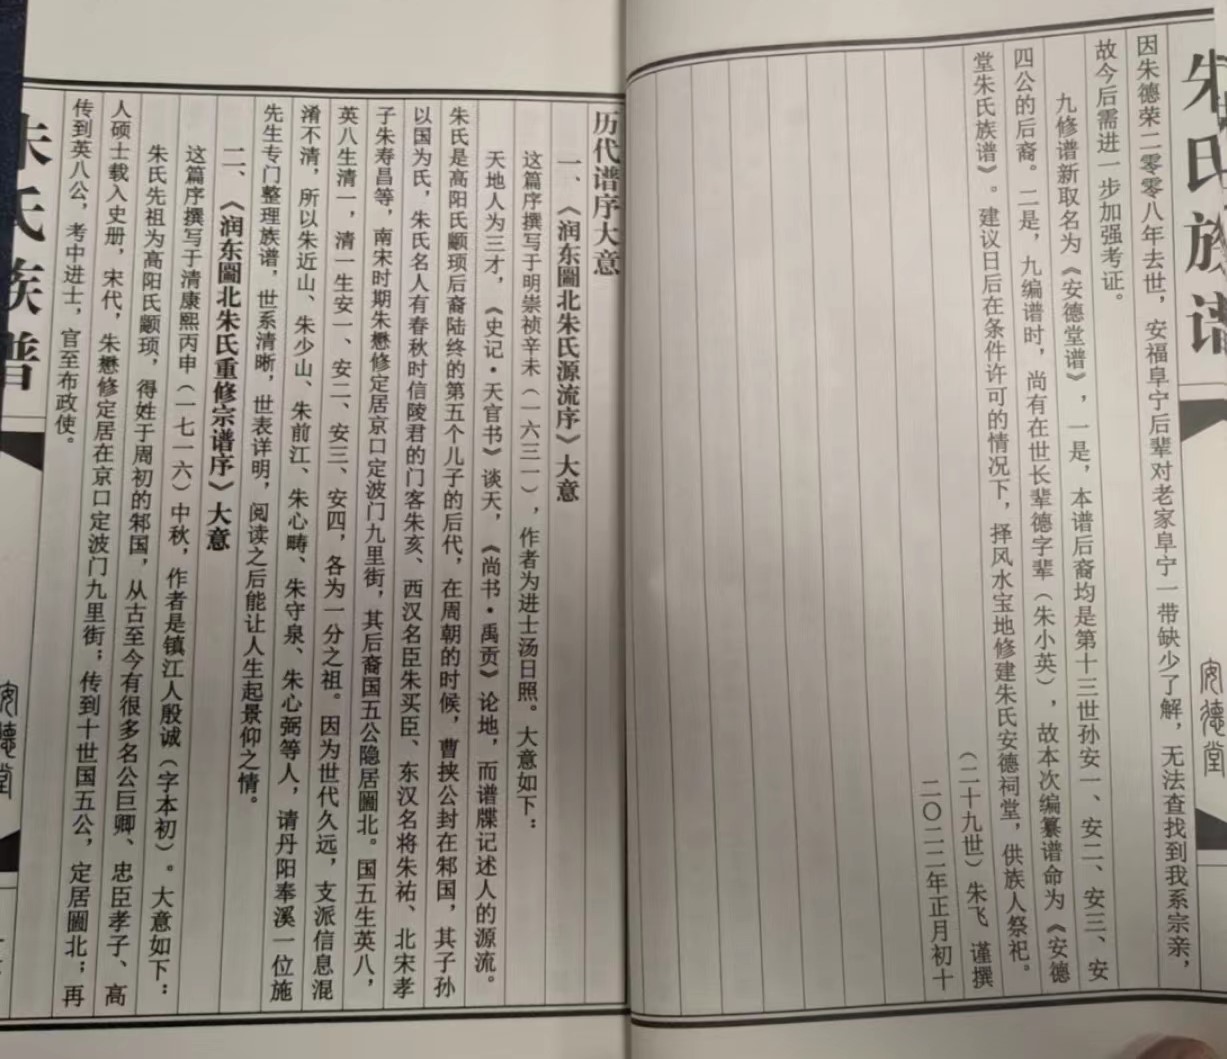 朱氏族谱
安德堂
因朱德荣二零零八年去世，安福阜宁后辈对老家阜宁一带缺少了解，无法查找到我系宗亲，
故今后需进一步加强考证。
九修谱新取名为《安德堂谱》，一是，本谱后裔均是第十三世孙安一、安二、安三、安
四公的后裔。二是，九编谱时，尚有在世长辈德字辈（朱小英），故本次编纂谱命为《安德
堂朱氏族谱》。建议日后在条件许可的情况下，择风水宝地修建朱氏安德祠堂，供族人祭祀。
（二十九世）朱飞 谨撰
二〇二二年正月初十
历代谱序大意
一、《润东圌北朱氏源流序》大意
这篇序撰写于明崇祯辛未（一六三一），作者为进士汤日照。大意如下：
天地人为三才，《史记·天官书》谈天，《尚书·禹贡》论地，而谱牒记述人的源流。
朱氏是高阳氏颛顼后裔陆终的第五个儿子的后代，在周朝的时候，曹挟公封在邾国，其子孙
以国为氏，朱氏名人有春秋时信陵君的门客朱亥、西汉名臣朱买臣、东汉名将朱祐、北宋孝
子朱寿昌等，南宋时期朱懋修定居京口定波门九里街，其后裔国五公隐居圌北。国五生英八，
英八生清一，清一生安一、安二、安三、安四，各为一分之祖。因为世代久远，支派信息混
淆不清，所以朱近山、朱少山、朱前江、朱心畴、朱守泉、朱心弼等人，请丹阳奉溪一位施
先生专门整理族谱，世系清晰，世表详明，阅读之后能让人生起景仰之情。
二、《润东圌北朱氏重修宗谱序》大意
这篇序撰写于清康熙丙申（一七一六）中秋，作者是镇江人殷诚（字本初）。大意如下：
朱氏先祖为高阳氏颛顼，得姓于周初的邾国，从古至今有很多名公巨卿、忠臣孝子、高
人硕士载入史册，宋代，朱懋修定居在京口定波门九里街；传到十世国五公，定居圌北；再
传到英八公，考中进士，官至布政使。
朱氏族谱
安德堂